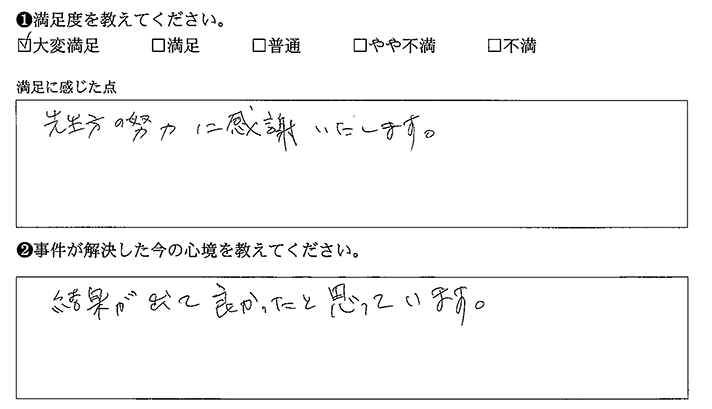 ❶満足度を教えてください。
☑大変満足 □満足 □普通 □やや不満 □不満
満足に感じた点
先生方の努力に感謝いたします。
❷事件が解決した今の心境を教えてください。
結果が出て良かったと思っています。